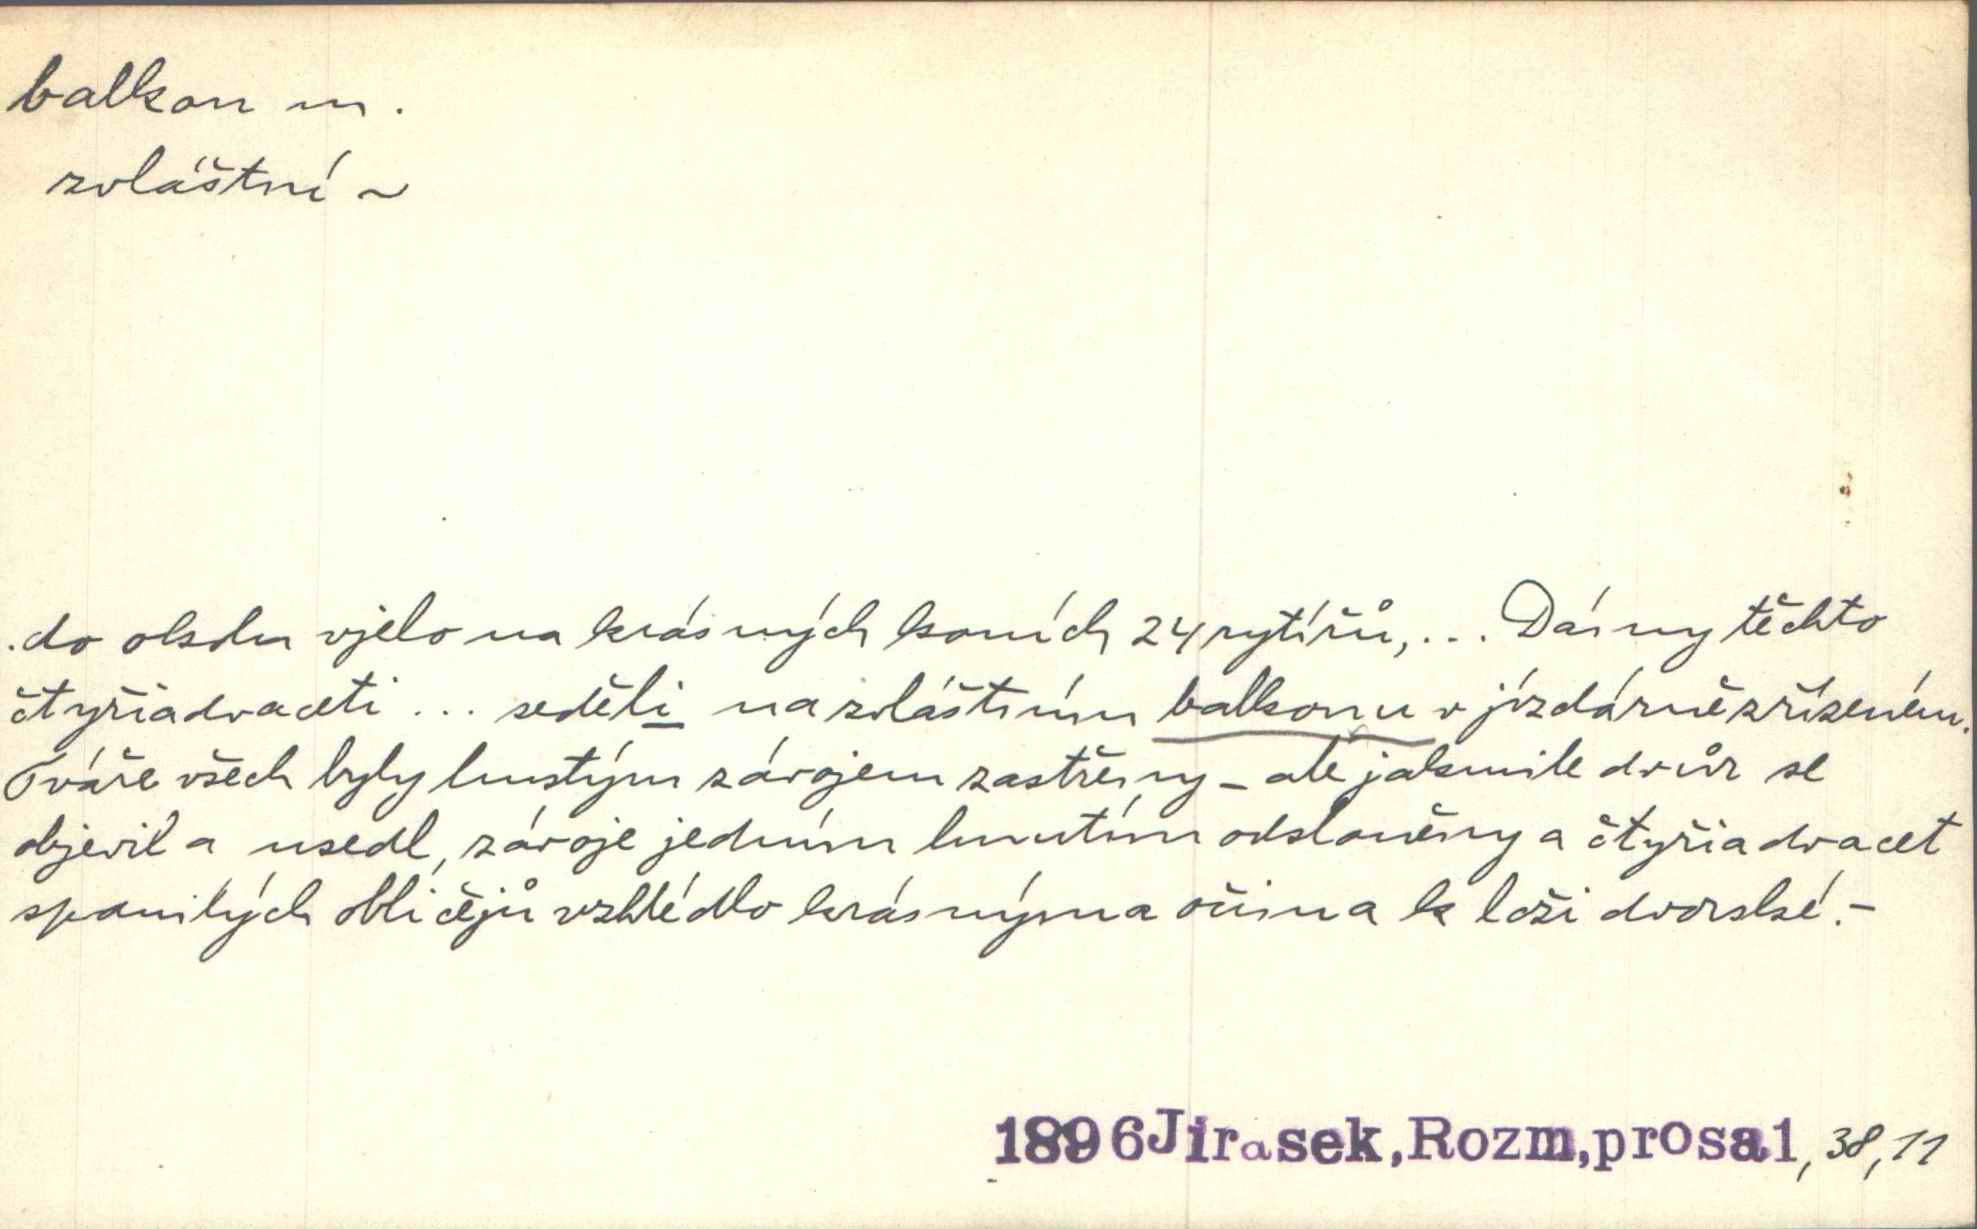 balkon m.
zvláštní ~
.do olsdu vjelo na krásných koních 24 rytířů,... Dámy těchto
čtyřiadvaceti ... seděli na zvláštním balkonu v jízdárně zřízeném.
Tváře všech byly hustým závojem zastřeny – ale jakmile dvůr se
objevil a usedl, závoje jedním hnutím odsloněny a čtyřiadvacet
spanilých obličejů vzhlédlo krásnýma očima k loži dvorské. –
1896 Jirasek, Rozm, prosa 1, 38, 11